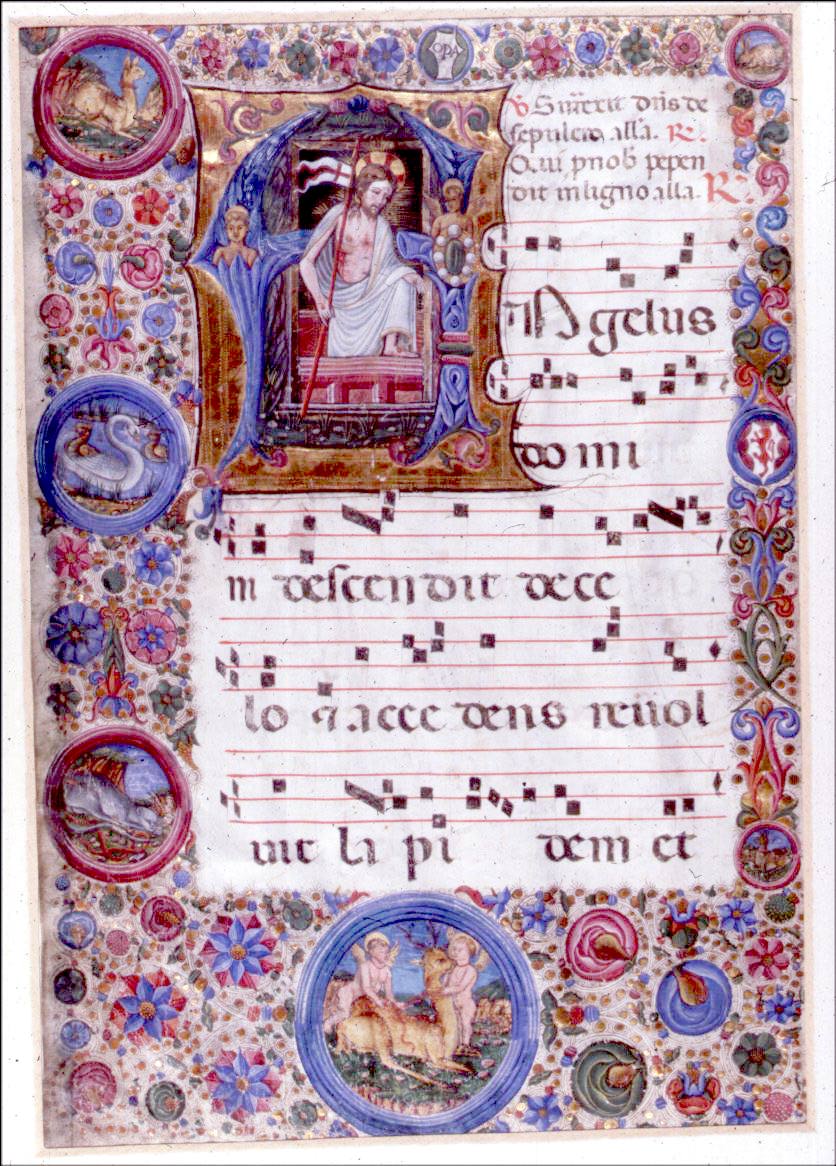 OPA
℣ Surrexit dñs de
sepulcro, all'a. R⁊.
Qui p nob̄ pepen
dit in ligno alla. R⁊.
Angelus
domi
ni descendit de ce
lo ⁊ acce dens reuol
uit la pi dem et